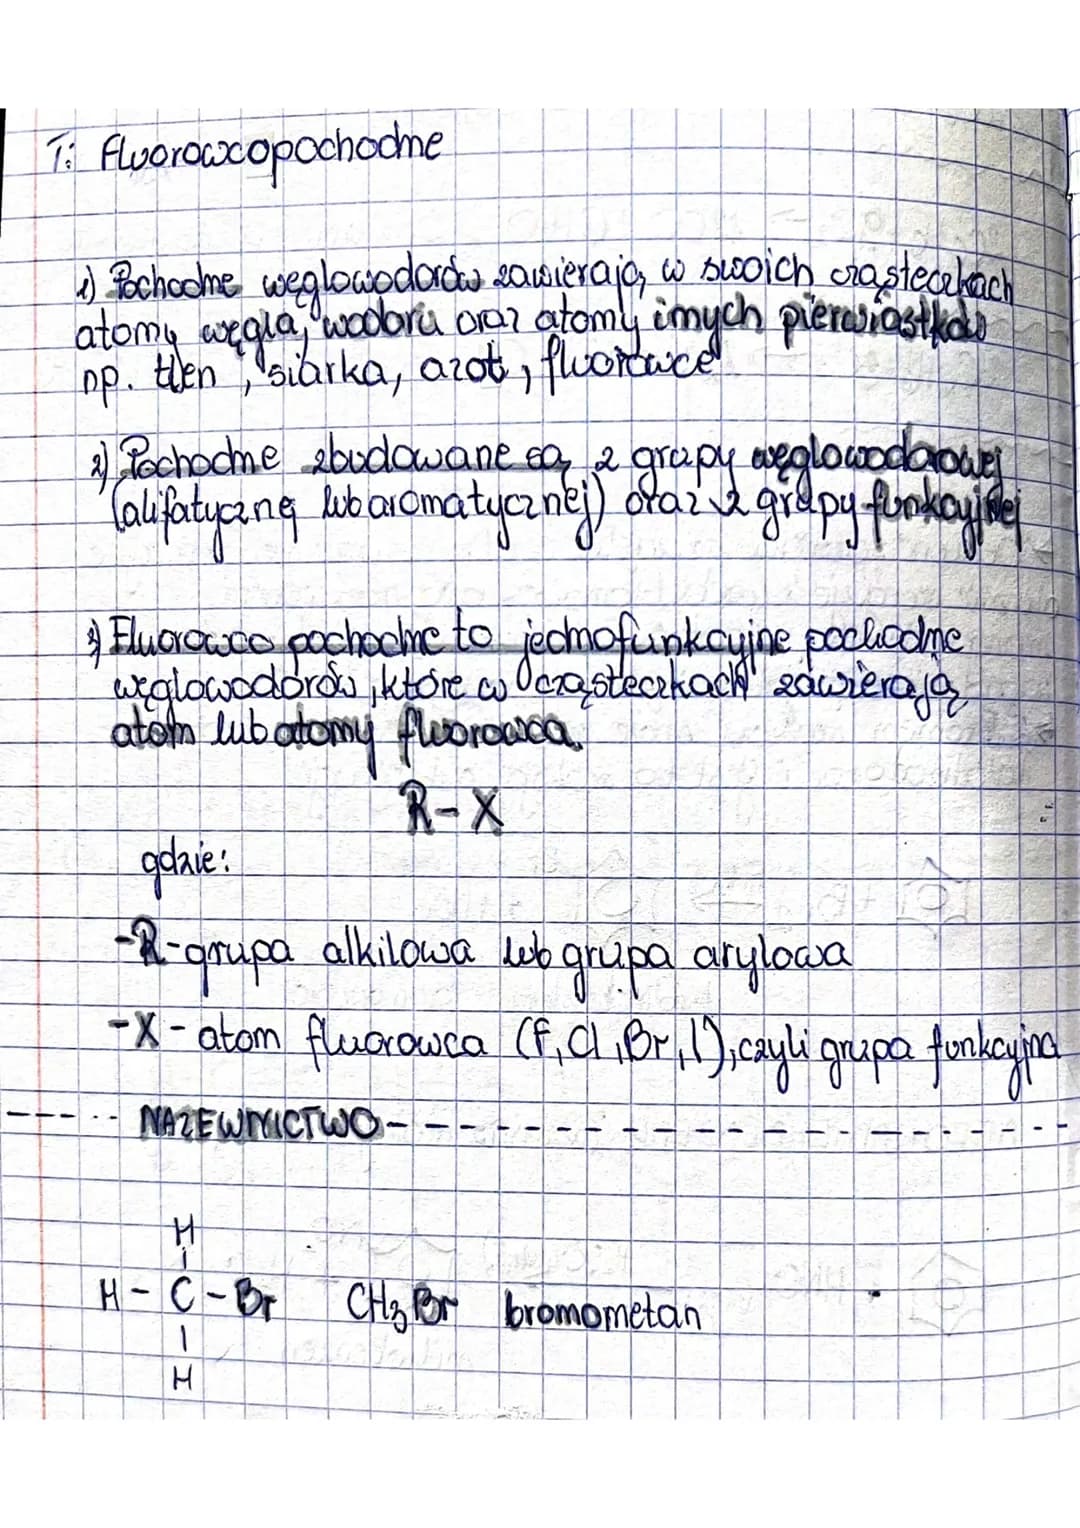 T: Fluorowcopochodne
1) Pochodne węglowodorów zawierają w swoich cząsteczkach
atomy węgla, wodoru oraz atomy innych pierwiastków
np. tlen, siarka, azot, fluorowce
2) Pochodne zbudowane są z grupy węglowodorowej
(alifatyczną lub aromatycznej) oraz z grupy funkcyjnej
3) Fluorowco pochodne to jednofunkcyjne pochodne
węglowodorów, które w cząsteczkach zawierają
atom lub atomy fluorowca.
R - X
gdzie:
-R-grupa alkilowa lub grupa arylowa
-X-atom fluorowca (F, Cl, Br, I), czyli grupa funkcyjna
NAZEWNICTWO
H
H - C - Br CH₃Br bromometan
H